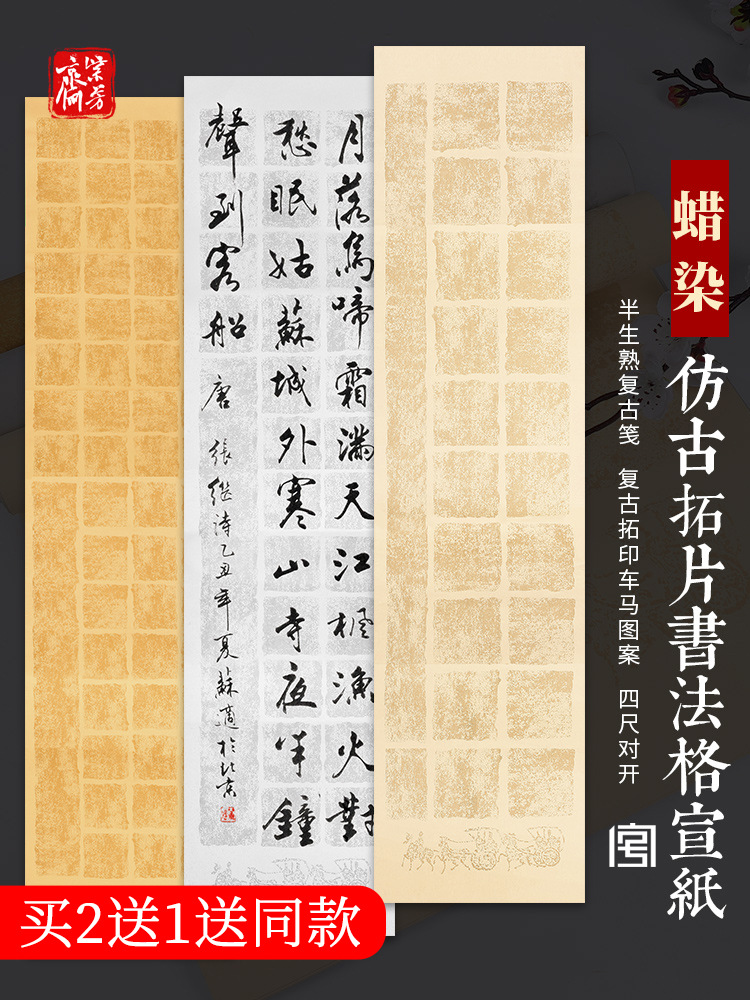 紫芳齋
月落烏啼霜滿天江楓漁火對
愁眠姑蘇城外寒山寺夜半鐘
聲到客船 唐 張継诗乙丑年夏蘇適於北京
蜡染
仿古拓片書法格宣紙
半生熟复古笺 复古拓印车马图案 四尺对开
买2送1送同款